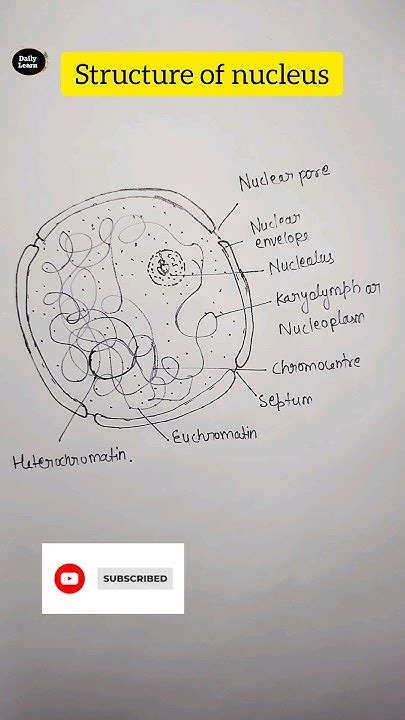 Daily
Learn
Structure of nucleus
Nuclear pore
Nuclear
envelope
Nucleolus
Karyolymph or
Nucleoplasm
Chromocentre
Septum
Euchromatin
Heterochromatin.
SUBSCRIBED